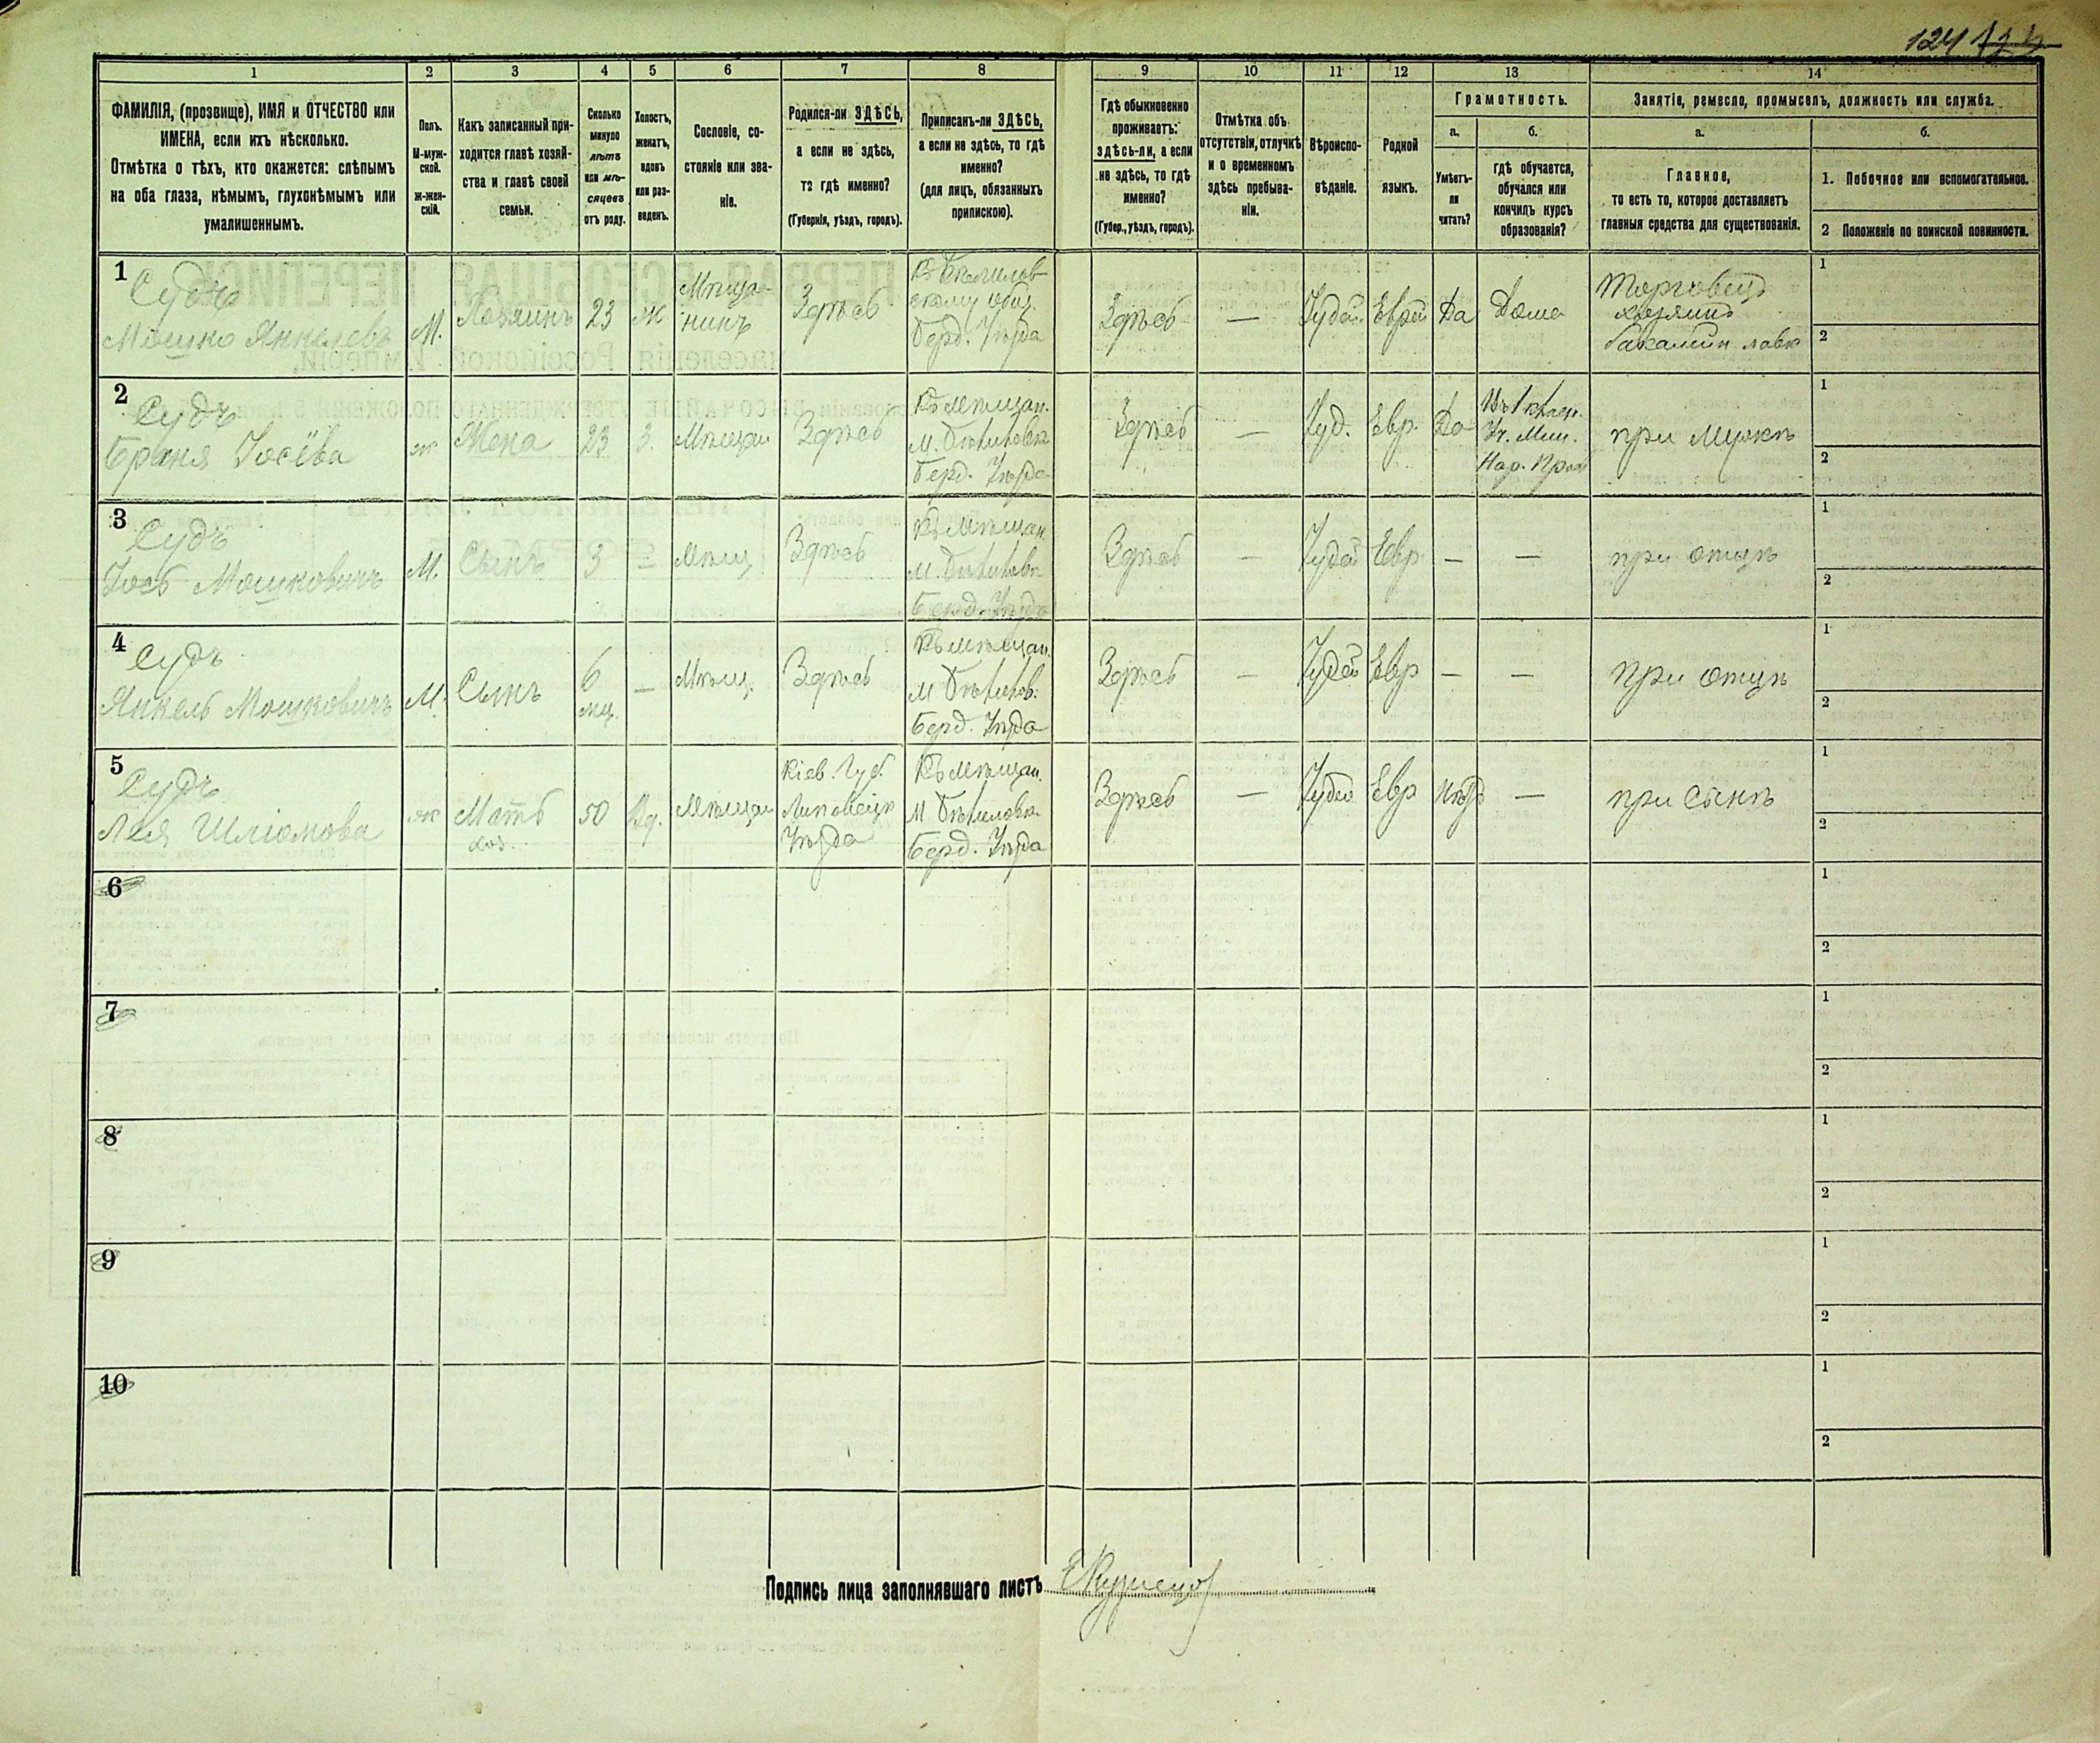 124
1 2 3 4 5 6 7 8 9 10 11 12 13 14
ФАМИЛІЯ, (прозвище), ИМЯ и ОТЧЕСТВО или
ИМЕНА, если ихъ нѣсколько.
Отмѣтка о тѣхъ, кто окажется: слѣпымъ
на оба глаза, нѣмымъ, глухонѣмымъ или
умалишеннымъ.
Полъ.
М-муж-
ской.
ж-жен-
скій.
Какъ записанный при-
ходится главѣ хозяй-
ства и главѣ своей
семьи.
Сколько
минуло
лѣтъ
или мѣ-
сяцевъ
отъ роду.
Холостъ,
женатъ,
вдовъ
или раз-
веденъ.
Сословіе, со-
стояніе или зва-
ніе.
Родился-ли ЗДѢСЬ,
а если не здѣсь,
то гдѣ именно?
(Губернія, уѣздъ, городъ).
Приписанъ-ли ЗДѢСЬ,
а если не здѣсь, то гдѣ
именно?
(для лицъ, обязанныхъ
припискою).
Гдѣ обыкновенно
проживаетъ:
здѣсь-ли, а если
не здѣсь, то гдѣ
именно?
(Губер., уѣздъ, городъ).
Отмѣтка объ
отсутствіи, отлучкѣ
и о временномъ
здѣсь пребыва-
ніи.
Вѣроиспо-
вѣданіе.
Родной
языкъ.
Грамотность.
а.
Умѣетъ-
ли
читать?
б.
гдѣ обучается,
обучался или
кончилъ курсъ
образованія?
Занятіе, ремесло, промыселъ, должность или служба.
а.
Главное,
то есть то, которое доставляетъ
главныя средства для существованія.
б.
1. Побочное или вспомогательное.
2 Положеніе по воинской повинности.
1
Судъ
Мошко Янкелевъ
М.
Хозяинъ
23
ж
Мѣща-
нинъ
Здѣсь
Берд. Уѣзда
Здѣсь
—
Іудей
Еврей
Да
Дома
Торговецъ
хозяинъ
бакалейн лавк
1
2
2
Судъ
Брыня Іосёва
ж
Жена
23
З.
Мѣщан
Здѣсь
Къ мѣщан.
Берд. Уѣзда
Здѣсь
—
Іуд.
Евр.
Да
Нар. Прос
при мужѣ
1
2
3
Судъ
Іось Мошковичъ
М.
Сынъ
3
—
Мѣщ
Здѣсь
Къ мѣщан.
Берд. Уѣзда
Здѣсь
—
Іудей
Евр
—
—
при отцѣ
1
2
4
Судъ
Янкель Мошковичъ
М.
Сынъ
6
мц.
—
Мѣщ.
Здѣсь
Къ мѣщан.
Берд. Уѣзда
Здѣсь
—
Іудей
Евр
—
—
При отцѣ
1
2
5
Судъ
Лея Шліомова
ж
Мать
хоз.
50
Вд.
Мѣщан
Кіев. Губ.
Липовецк
Уѣзда
Къ мѣщан.
Берд. Уѣзда
Здѣсь
—
Іудей
Евр
Нѣтъ
—
при Сынѣ
1
2
6
1
2
7
1
2
8
1
2
9
1
2
10
1
2
Подпись лица заполнявшаго листъ